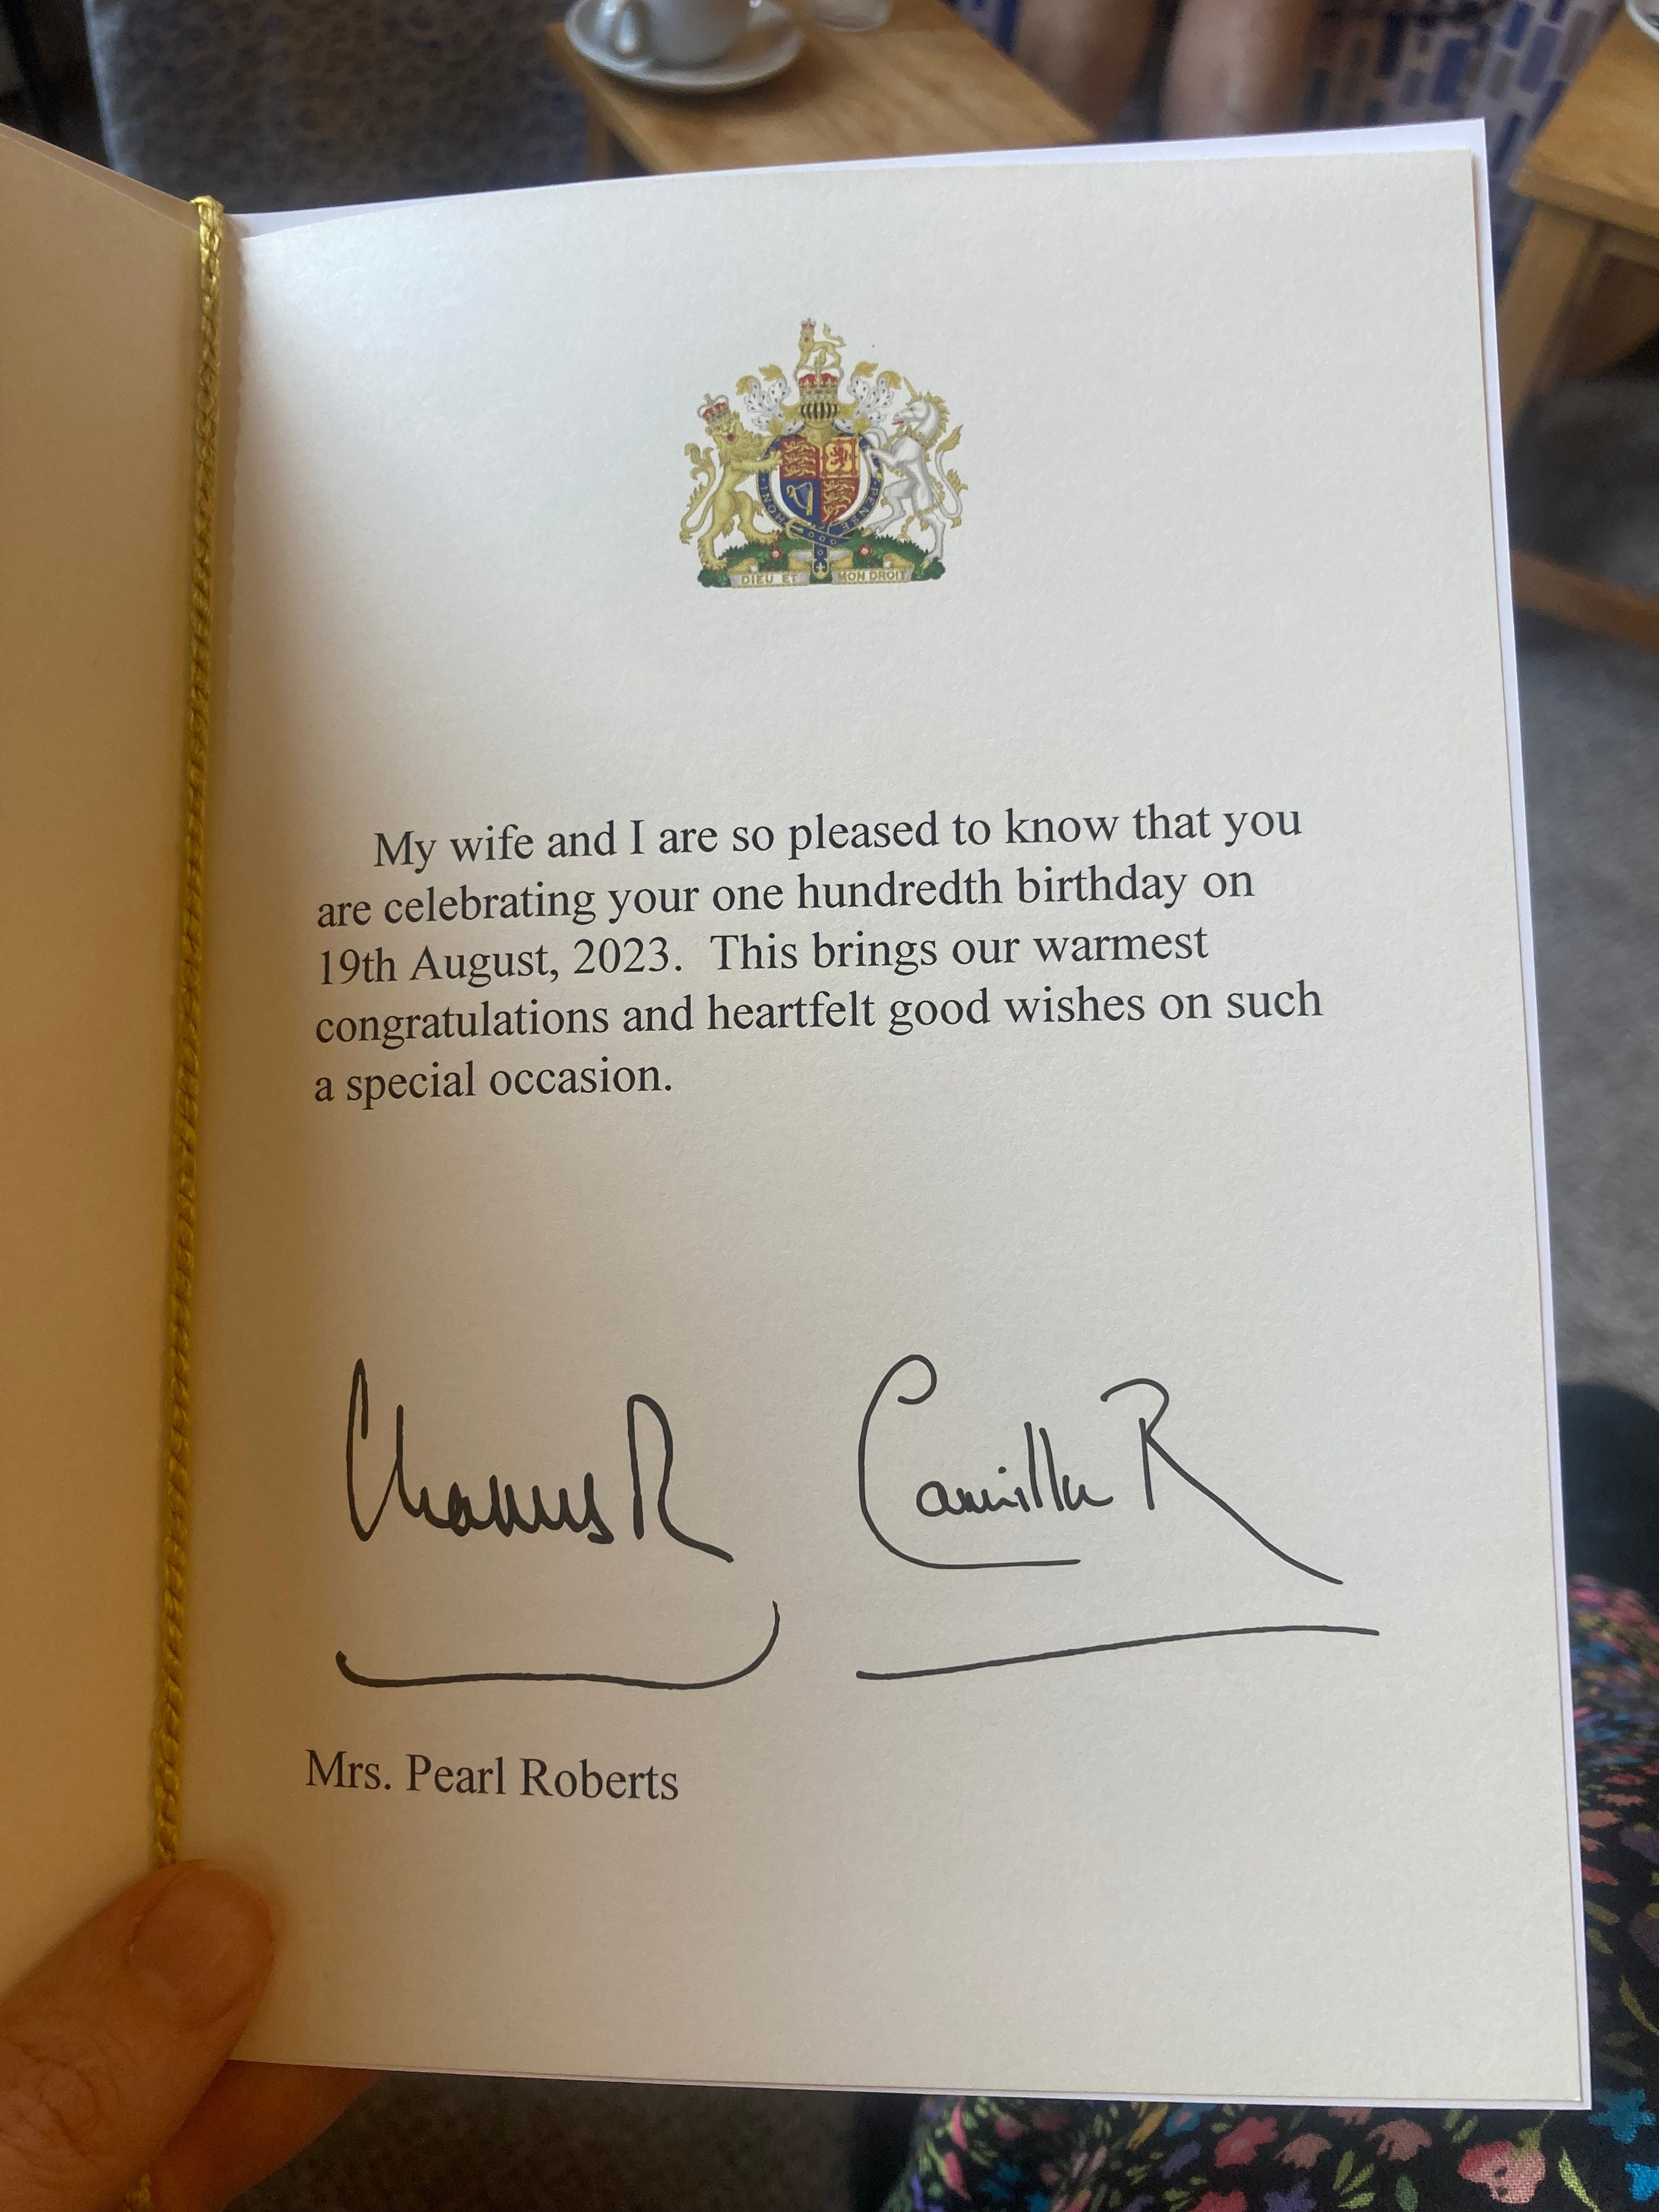 HONI
PENSE
DIEU ET MON DROIT
My wife and I are so pleased to know that you
are celebrating your one hundredth birthday on
19th August, 2023.  This brings our warmest
congratulations and heartfelt good wishes on such
a special occasion.
Charles R Camilla R
Mrs. Pearl Roberts